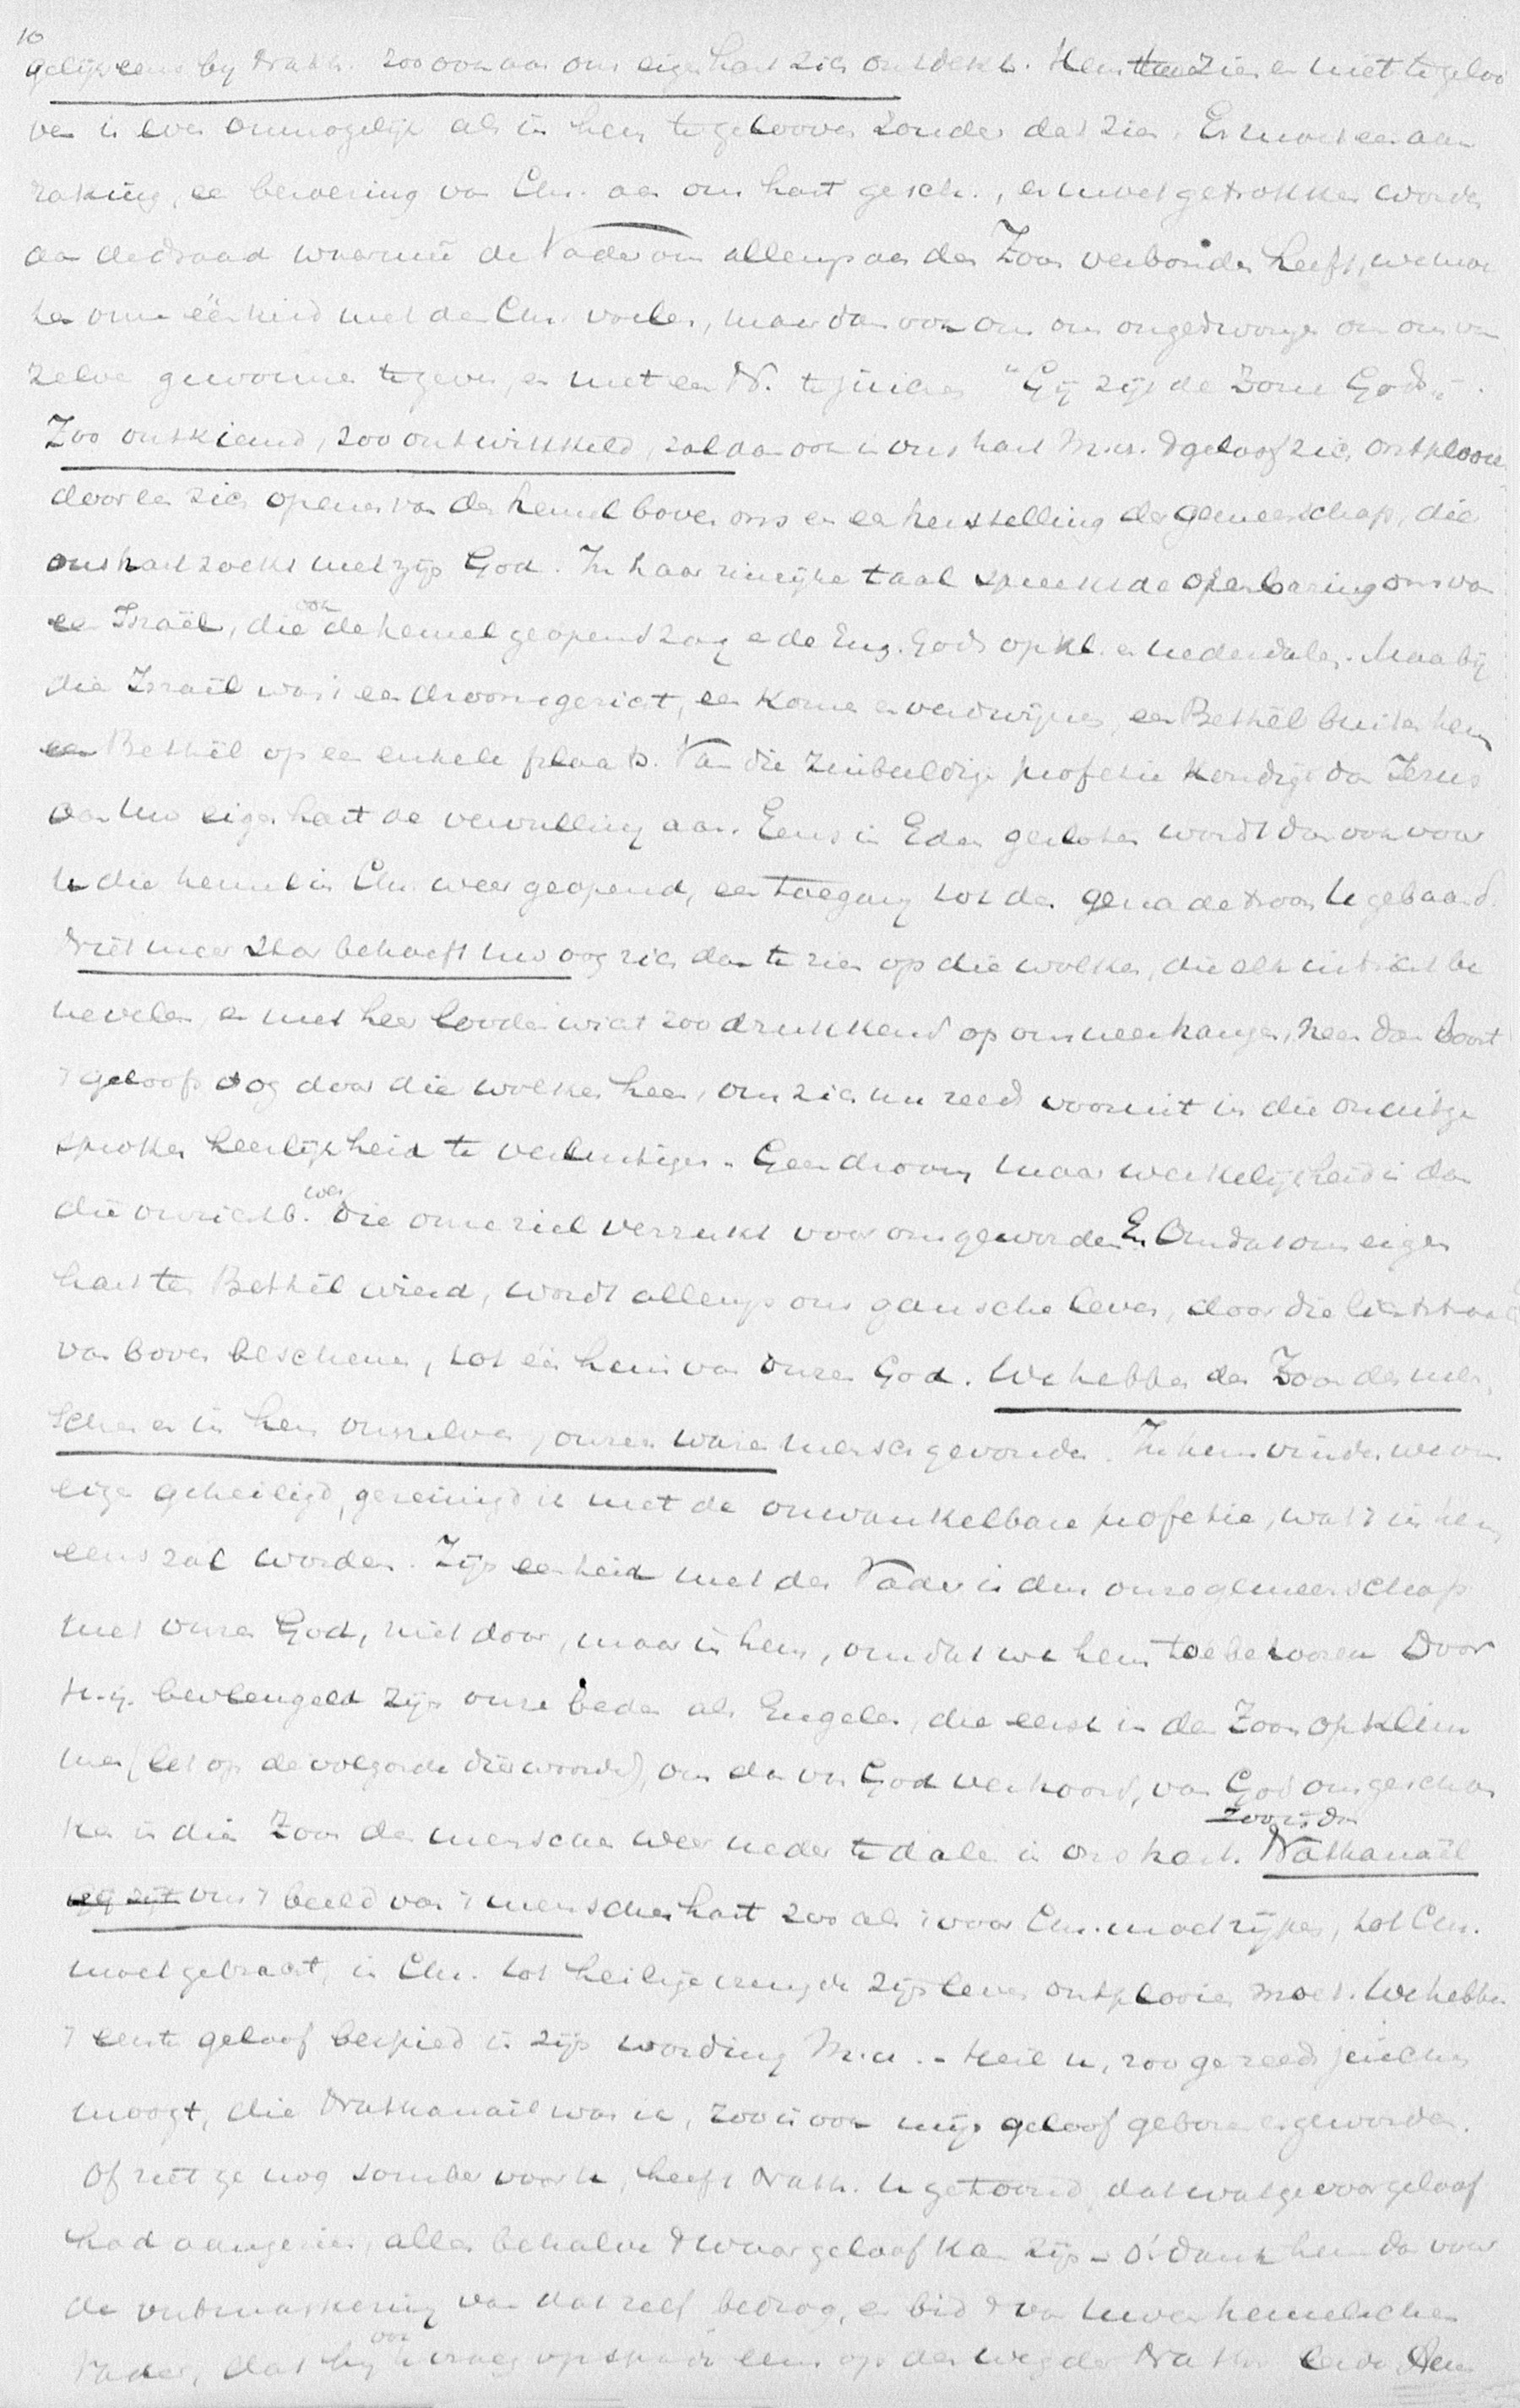 10
gelijk eens by Nath. zoo ook aan ons eigen hart zich ontdekt. Hem zien en niet te geloo
ven is even onmogelijk als in hem te gelooven zonder dat zien. Er moet een aan
raking, een beroering van Chr. aan ons hart gesch., er moet getrokken worden
aan de draad waarmeê de Vader ons allengs aan den Zoon verbonden heeft, we moe
ten onze éénheid met den Chr. voelen, maar dan ook om ons ongedwongen en ons van
zelve gewonnen te geven, en met een N. te juichen "Gij zijt de Zone Gods".
Zoo ontkiemd, zoo ontwikkeld, zal dan ook in ons hart M.H. 't geloof zich ontplooien
door een zich openen van den hemel boven ons en een herstelling der gemeenschap, die
ons hart zoekt met zijn God. In haar zinrijke taal spreekt de openbaring ons van
een Israël, die ook de hemel geopend zag en de Eng. Gods opkl. en nederdalen. Maar bij
die Israël was 't een droomgezicht, een komen en verdwijnen, een Bethêl buiten hem
een Bethêl op een enkele plaats. Van die zinbeeldige profetie kondigt dan Jezus
aan uw eigen hart de vervulling aan. Eens in Eden gesloten wordt dan ook voor
U die hemel in Chr. weer geopend, een toegang tot den genadetroon U gebaand.
Niet meer star behoeft uw oog zich dan te zien op die wolken, die elk uitzicht be
nevelen, en met hun looden wicht zoo drukkend op ons neerhangen, neen dan boort
't geloofsoog door die wolken heen, om zich nu reeds vooruit in die onuitge
sproken heerlijkheid te verlustigen. Geen droom maar werkelijkheid is dan
die onzichtb. wer. die onze ziel verrukt voor ons geworden En Omdat ons eigen
hart ten Bethêl wierd, wordt allengs ons gansche leven, door die lichtstraal
van boven beschenen, tot één huis van onzen God. We hebben den Zoon des men
schen en in hem onszelven, onzen ware mensch gevonden. In hem vinden we ons
eigen geheiligd, gereinigd ik met de onwankelbare profetie, wat 't in hem
eens zal worden. Zijn eenheid met den Vader is dus onze gemeenschap
met onzen God, niet door, maar in hem, omdat we hem toebehooren Door
H.G. bevleugeld zijn onze beden als Engelen, die eerst in den Zoon opklim
men (let op de volgorde dier woorden), om dan van God verhoord, van God ons geschon
ken in dien Zoon des menschen weer neder te dalen in ons hart. Zoo is dan Nathanaël
ons 't beeld van 't menschenhart zooals 't voor Chr. moet rijpen, tot Chr.
moet gebracht, in Chr. tot heilige vreugde zijn leven ontplooien moet. We hebben
't eerste geloof bespied in zijn wording M.H. - Heil u, zoo ge reeds juichen
moogt, die Nathanaël was ik, zoo is ook mijn geloof geboren en geworden.
Of ziet ge nog somber voor u, heeft Nath. U getoond, dat wat ge voor geloof
had aangezien, alles behalve 't waar geloof kan zijn - o! dank hem dan voor
de ontmaskering van dat zelf bedrog, en bid 't van Uwen hemelschen
Vader, dat hij ook U vroeg op spade eens op den weg der Nath. leide Amen